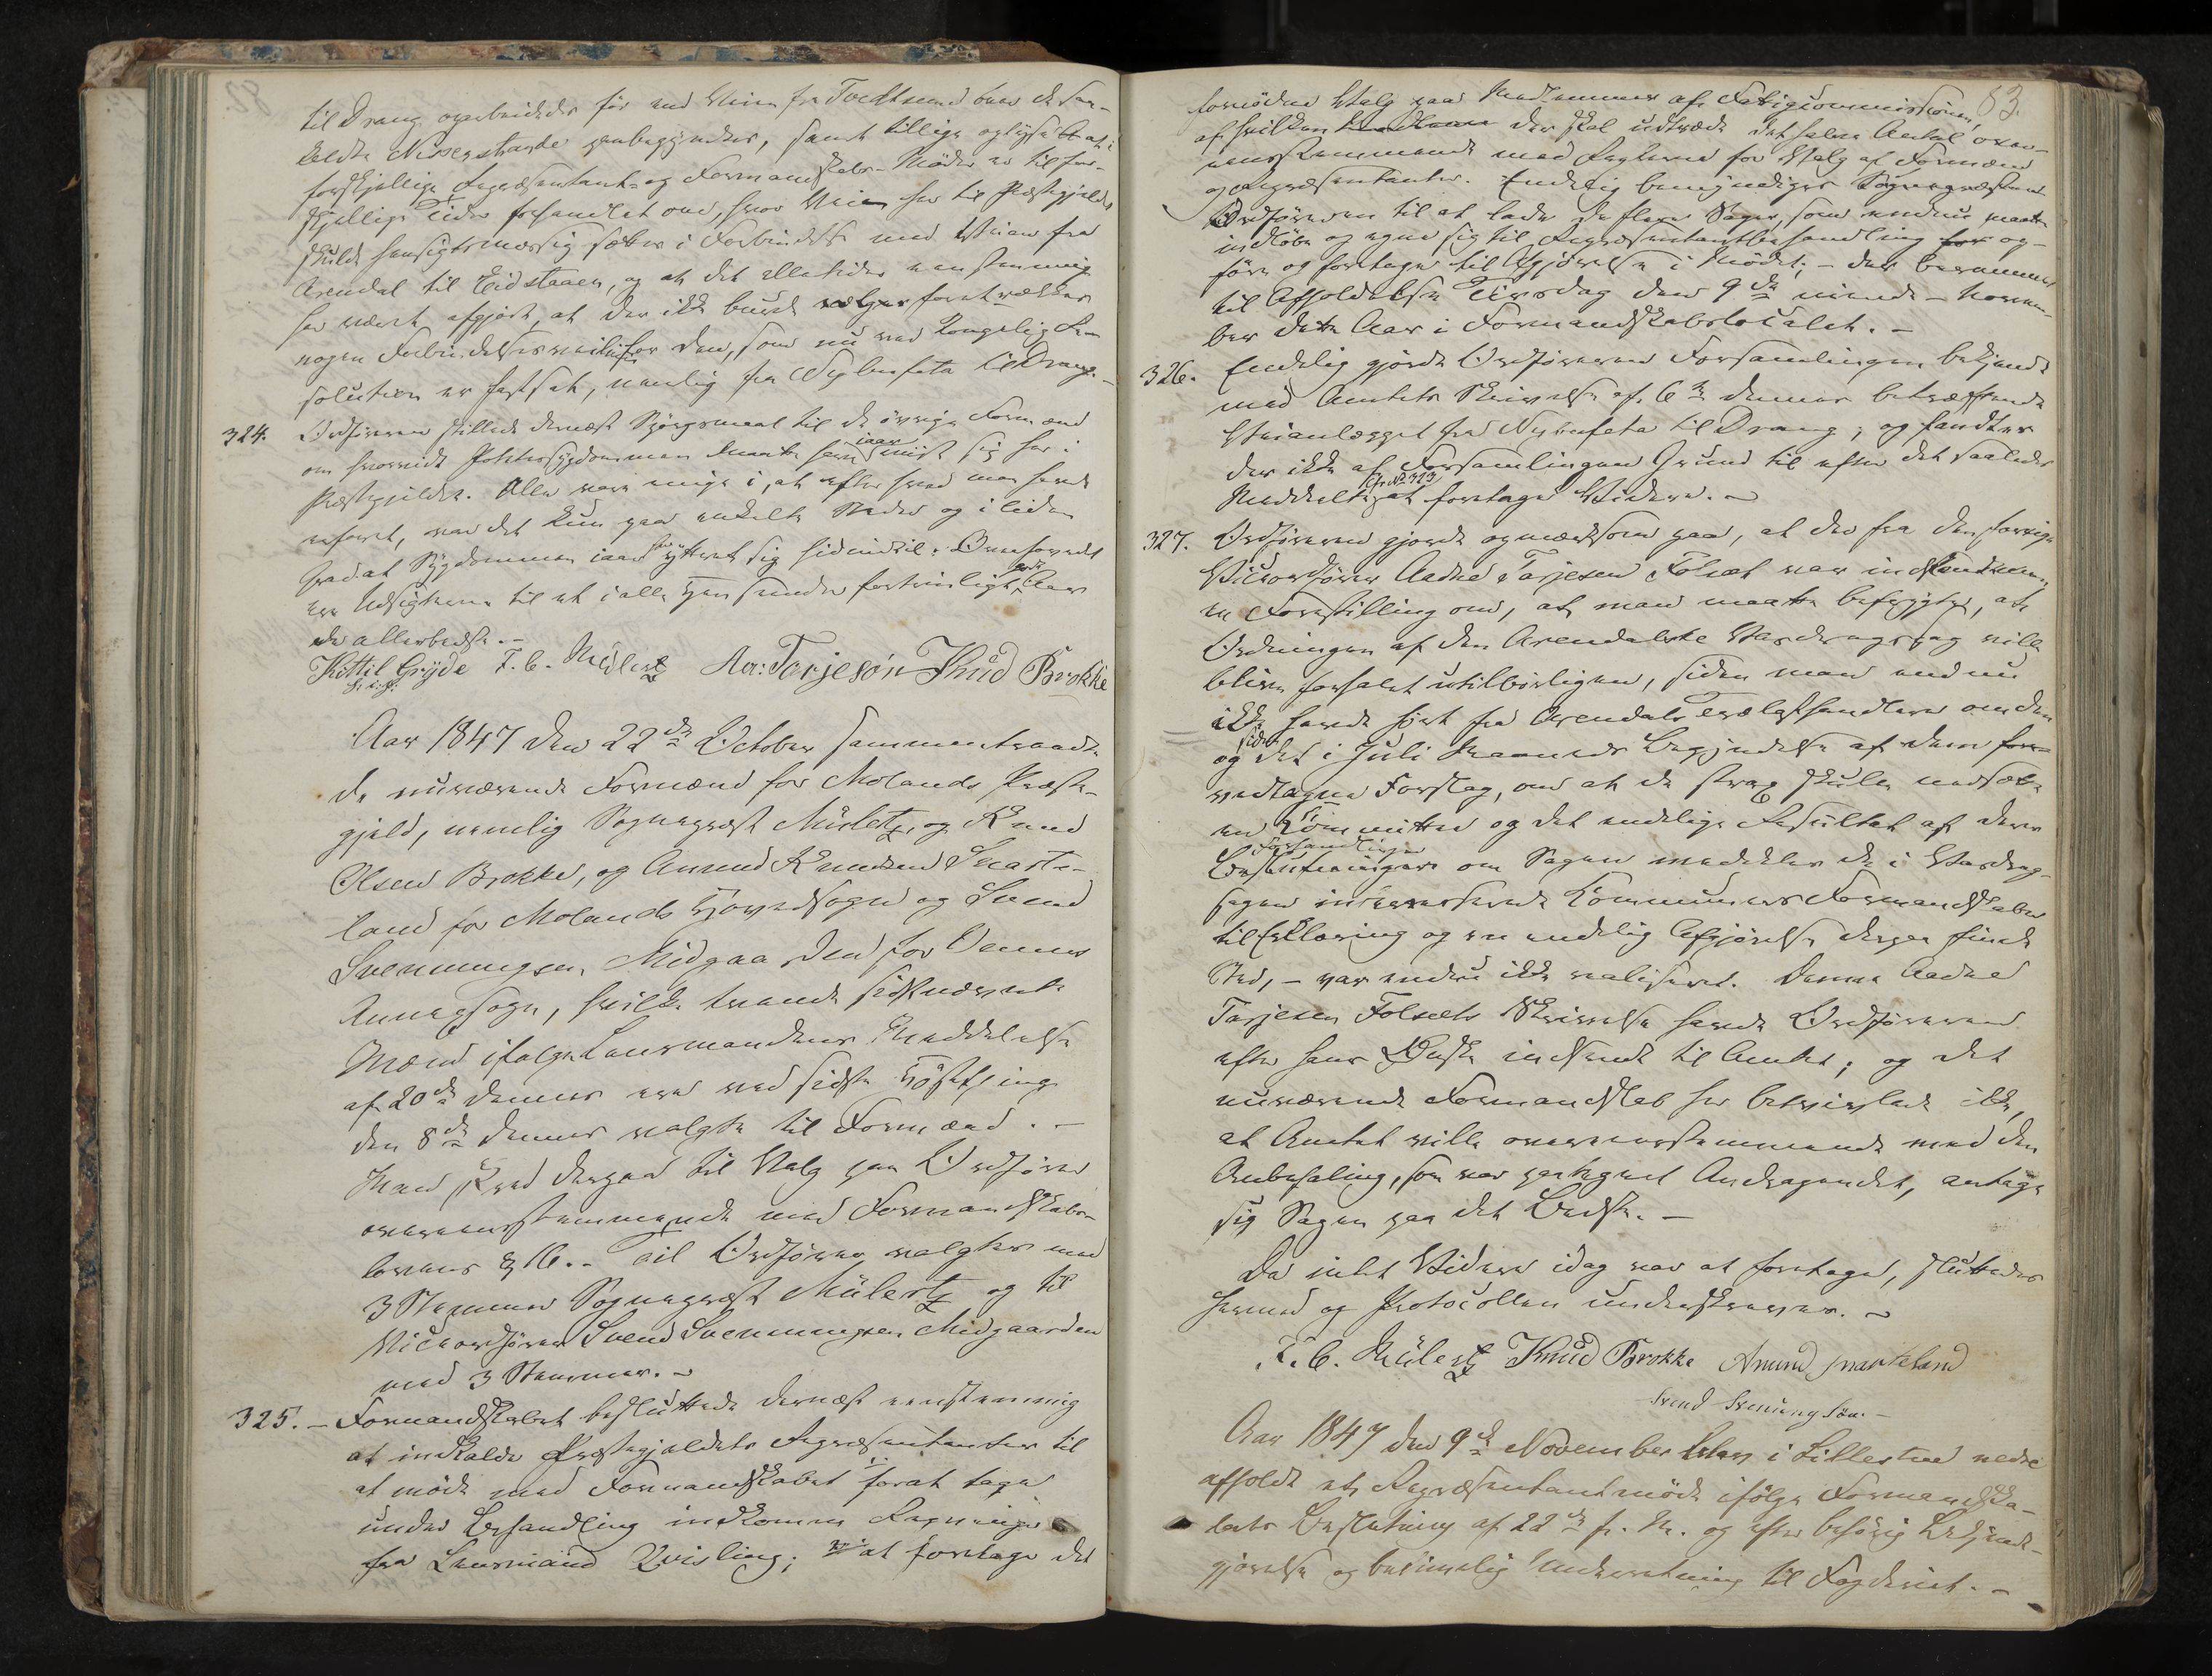 til Drang oparbeides før end Veien fra Tvedtsund over de saa-
kaldte Nissenstande paabegyndtes, samt tillige oplyse at i
forskjellige Repræsentant- og Formandskabs-Møder er til for-
skjellige Tider forhandlet om, hvor Veien her til Præstegjeldet
skulde hensigtsmæssig sættes i Forbindelse med Veien fra
Arendal til Eidstaaen, og at det alletider eenstemmig
har været afgjort, at der ikke burde vælges foretrækkes
nogen Forbindelsesveilinie for den, som nu ved Kongelig Re-
solution er fastsat, nemlig fra Nybufeta til Drang.
324. Ordføreren stillede dernæst Spørgsmaal til de øvrige Formænd
om hvorvidt Potetessygdommen maatte have iaar viist sig her i
Præstegjeldet. Alle vare enige i, at efter hvad man havde
erfaret, var det kun paa enkelte Steder og i liden
Grad at Sygdommen iaar har yttret sig hidindtil. Ovenhovedet
ere Udsigterne til et i alle Henseender fortrinligt godt Aar
de allerbedste.-
Kittil Gryde F. C. Mülertz Aa: Tarjesøn Knud Brokke
Aar 1847 den 22de October sammentraadte
de nuværende Formænd for Molands Præste-
gjeld, nemlig Sognepræst Mülertz, og Knud
Olsen Brokke, og Anund Knudsen Snarte-
land for Molands Hovedsogn og Svend
Svenningsen Midgaarden for Vennes
Annexsogn, hvilke tvende sidstnævnte
Mænd ifølge Lensmandens Meddelelse
af 20de dennes ere ved sidste Høstthing
den 8de dennes valgte til Formænd.-
Man skred derpaa til Valg paa Ordfører
overeensstemmende med Formandskabs-
lovens § 16.- Til Ordfører valgtes med
3 Stemmer Sognepræst Mülertz og til
Viceordfører Svend Svenningsen Midgaarden
med 3 Stemmer.-
325.- Formandskabet besluttede dernæst eenstemmig
at indkalde Præstegjeldets Repræsentanter til
at møde med Formandskabet forat tage
under Behandling indkomne Regninger
fra Lensmand Qvisling; at foretage det
83.
fornødne Valg paa Medlemmer af Fattigcommissionen,
af hvilken der skal udtræde det halve Antal over-
eensstemmende med Reglerne for Valg af Formænd
og Repræsentanter. Endelig bemyndiges Sognepræsten
Ordføreren til at lade de flere Sager, som endnu maatte
indløbe og egne sig til Repræsentantbehandling for op-
føre og foretages til Afgjørelse i Mødet; - der berammes
til Afholdelse Tirsdag den 9de niende - Novem-
ber dette Aar i Formandskabslocalet.-
326. Endelig gjorde Ordføreren Forsamlingen bekjendt
med Amtets Skrivelse af 6te dennes betræffende
Veianlægget fra Nybufeta til Drang; og fandtes
der ikke af Forsamlingen Grund til efter det saaledes
Meddelte cfr No 323 at foretage Videre.-
327. Ordføreren gjorde opmærksom paa, at der fra den forrige
Viceordfører Aadne Tarjesen Folsæt var indkommen
en Forestilling om, at man maatte befrygte, at
Ordningen af den Arendalske Vasdragssag vilde
blive forhalet utilbørligen, siden man endnu
ikke havde hørt fra Arendals Trælasthandlere om den
og det siden i Juli Maaneds Begyndelse af dem fore-
vedtagne Forslag, om at de strax skulle nedsætte
en Committee og det endelige Resultat af deres
Beslutninger Forhandlinger om Sagen meddeles de i Vasdrag-
sagen interesserede Communers Formandskaber
til Erklæring og en endelig Afgjørelse derpaa finde
Sted, - var endnu ikke realiseret. Denne Aadne
Tarjesen Folsæts Skrivelse havde Ordføreren
efter hans Ønske indsendt til Amtet; og det
nuværende Formandskab har betvivlede ikke,
at Amtet ville overeensstemmende med den
Anbefaling, som var paategnet Andragendet, antage
sig Sagen paa det Bedste.-
Da intet Videre idag var at foretage, sluttedes
hermed og Protocollen underskreves.-
F. C. Mülertz Knud Brokke Anund snarteland
Svend Svenungsøn.-
Aar 1847 den 9de November blev i Lillestue nedre
afholdt et Repræsentantmøde ifølge Formandska-
bets Beslutning af 22de f. M. og efter behørig Bekjendt-
gjørelse og betimelig Underretning til Fogderiet.-